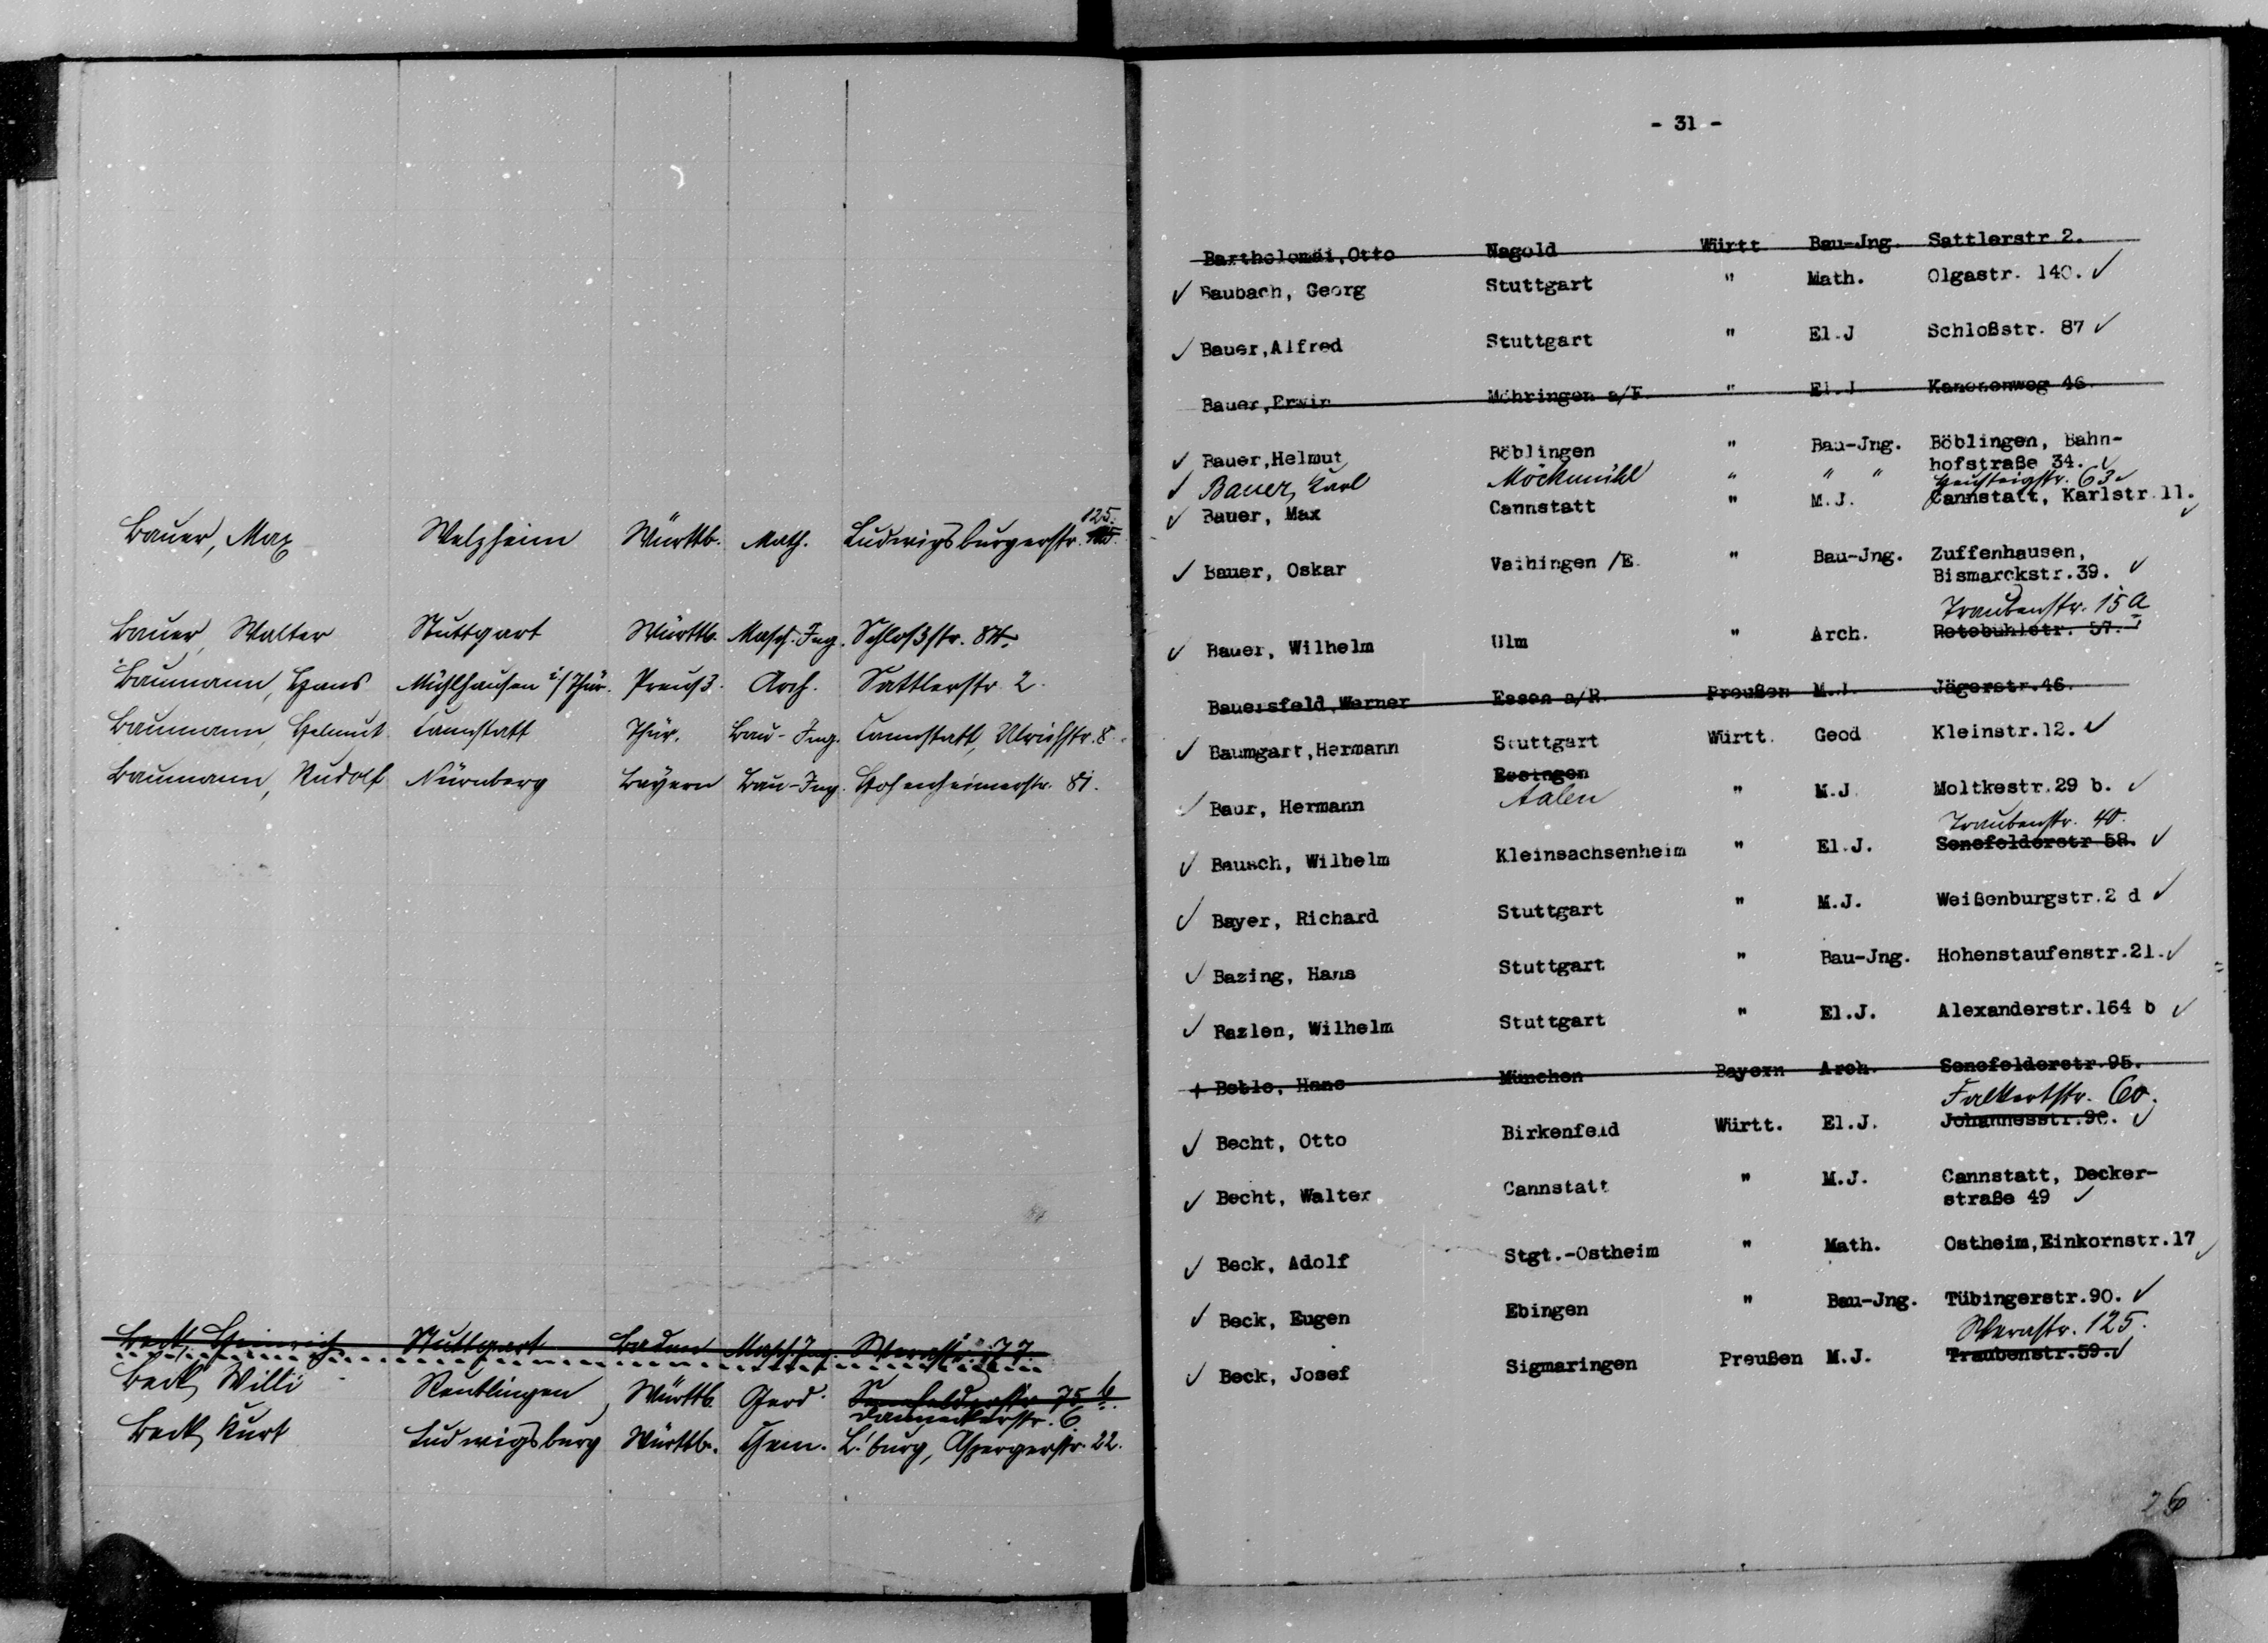 Bauer, Max Welzheim Württb. Math. Ludwigsburgerstr. 125.
Bauer, Walter Stuttgart Württb. Masch.-Ing. Schloßstr. 84.
Baumann, Hans Mühlhausen i/Thür. Preuß. Arch. Sattlerstr. 2.
Baumann, Helmut Cannstatt Thür. Bau-Ing. Cannstatt, Ulrichstr. 8.
Baumann, Rudolf Nürnberg Bayern Bau-Ing. Hohenheimerstr. 81.
Beck, Heinrich Stuttgart Baden Masch.Ing. Werastr. 77.
Beck, Willi Reutlingen Württb. Geod. Senefelderstr. 75 b.
Danneckerstr. 6
Beck, Kurt Ludwigsburg Württb. Chem. L'burg, Aspergerstr. 22.
- 31 -
Bartholomäi,Otto Nagold Württ Bau-Jng. Sattlerstr.2.
✓ Baubach, Georg Stuttgart " Math. Olgastr. 140. ✓
✓ Bauer,Alfred Stuttgart " El.J Schloßstr. 87 ✓
Bauer,Erwin Möhringen a/F. " El.J Kanonenweg 46.
✓ Bauer,Helmut Böblingen " Bau-Jng. Böblingen, Bahn-
hofstraße 34. ✓
✓ Bauer, Karl Möckmühl " " " 63 ✓
✓ Bauer, Max Cannstatt " M.J. Cannstatt, Karlstr.11. ✓
✓ Bauer, Oskar Vaihingen /E. " Bau-Jng. Zuffenhausen,
Bismarckstr.39. ✓
Traubenstr. 15 a
✓ Bauer, Wilhelm Ulm " Arch. Rotebühlstr. 57. ✓
Bauersfeld,Werner Essen a/R. Preußen M.J. Jägerstr.46.
✓ Baumgart,Hermann Stuttgart Württ. Geod Kleinstr.12. ✓
Essingen
✓ Baur, Hermann Aalen " M.J. Moltkestr.29 b. ✓
Traubenstr. 40.
✓ Bausch, Wilhelm Kleinsachsenheim " El.J. Senefelderstr 58. ✓
✓ Bayer, Richard Stuttgart " M.J. Weißenburgstr.2 d ✓
✓ Bazing, Hans Stuttgart " Bau-Jng. Hohenstaufenstr.21. ✓
✓ Bazlen, Wilhelm Stuttgart " El.J. Alexanderstr.164 b ✓
Hans München Bayern Arch. Senefelderstr.95.
Falkertstr. 60.
✓ Becht, Otto Birkenfeld Württ. El.J. Johannesstr.90. ✓
✓ Becht, Walter Cannstatt " M.J. Cannstatt, Decker-
straße 49 ✓
✓ Beck, Adolf Stgt.-Ostheim " Math. Ostheim,Einkornstr.17 ✓
✓ Beck, Eugen Ebingen " Bau-Jng. Tübingerstr.90. ✓
Werastr. 125.
✓ Beck, Josef Sigmaringen Preußen M.J. Traubenstr.59. ✓
26